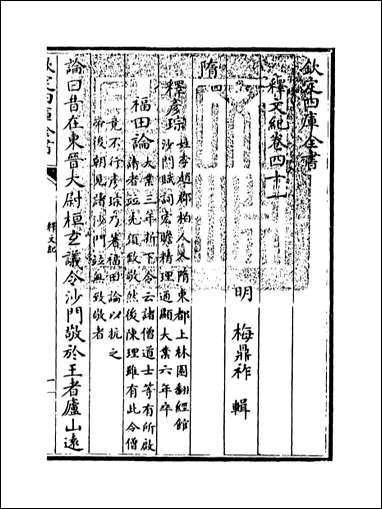 欽定四庫全書
釋文紀卷四十一
明 梅鼎祚 輯
隋四
釋彥琮 姓李趙郡柏人人隋東都上林園翻經館
沙門賦詞宏贍精理通顯大業六年卒
福田論 大業三年折下令云諸僧道士等有所啟
請者竝先須致敬然後陳理雖有此令僧
竟不行彥琮乃著福田論以抗之
帝後朝見諸沙門竝無致敬者
論曰昔在東晉大尉桓玄議令沙門敬於王者廬山遠
欽定四庫全書
釋文紀